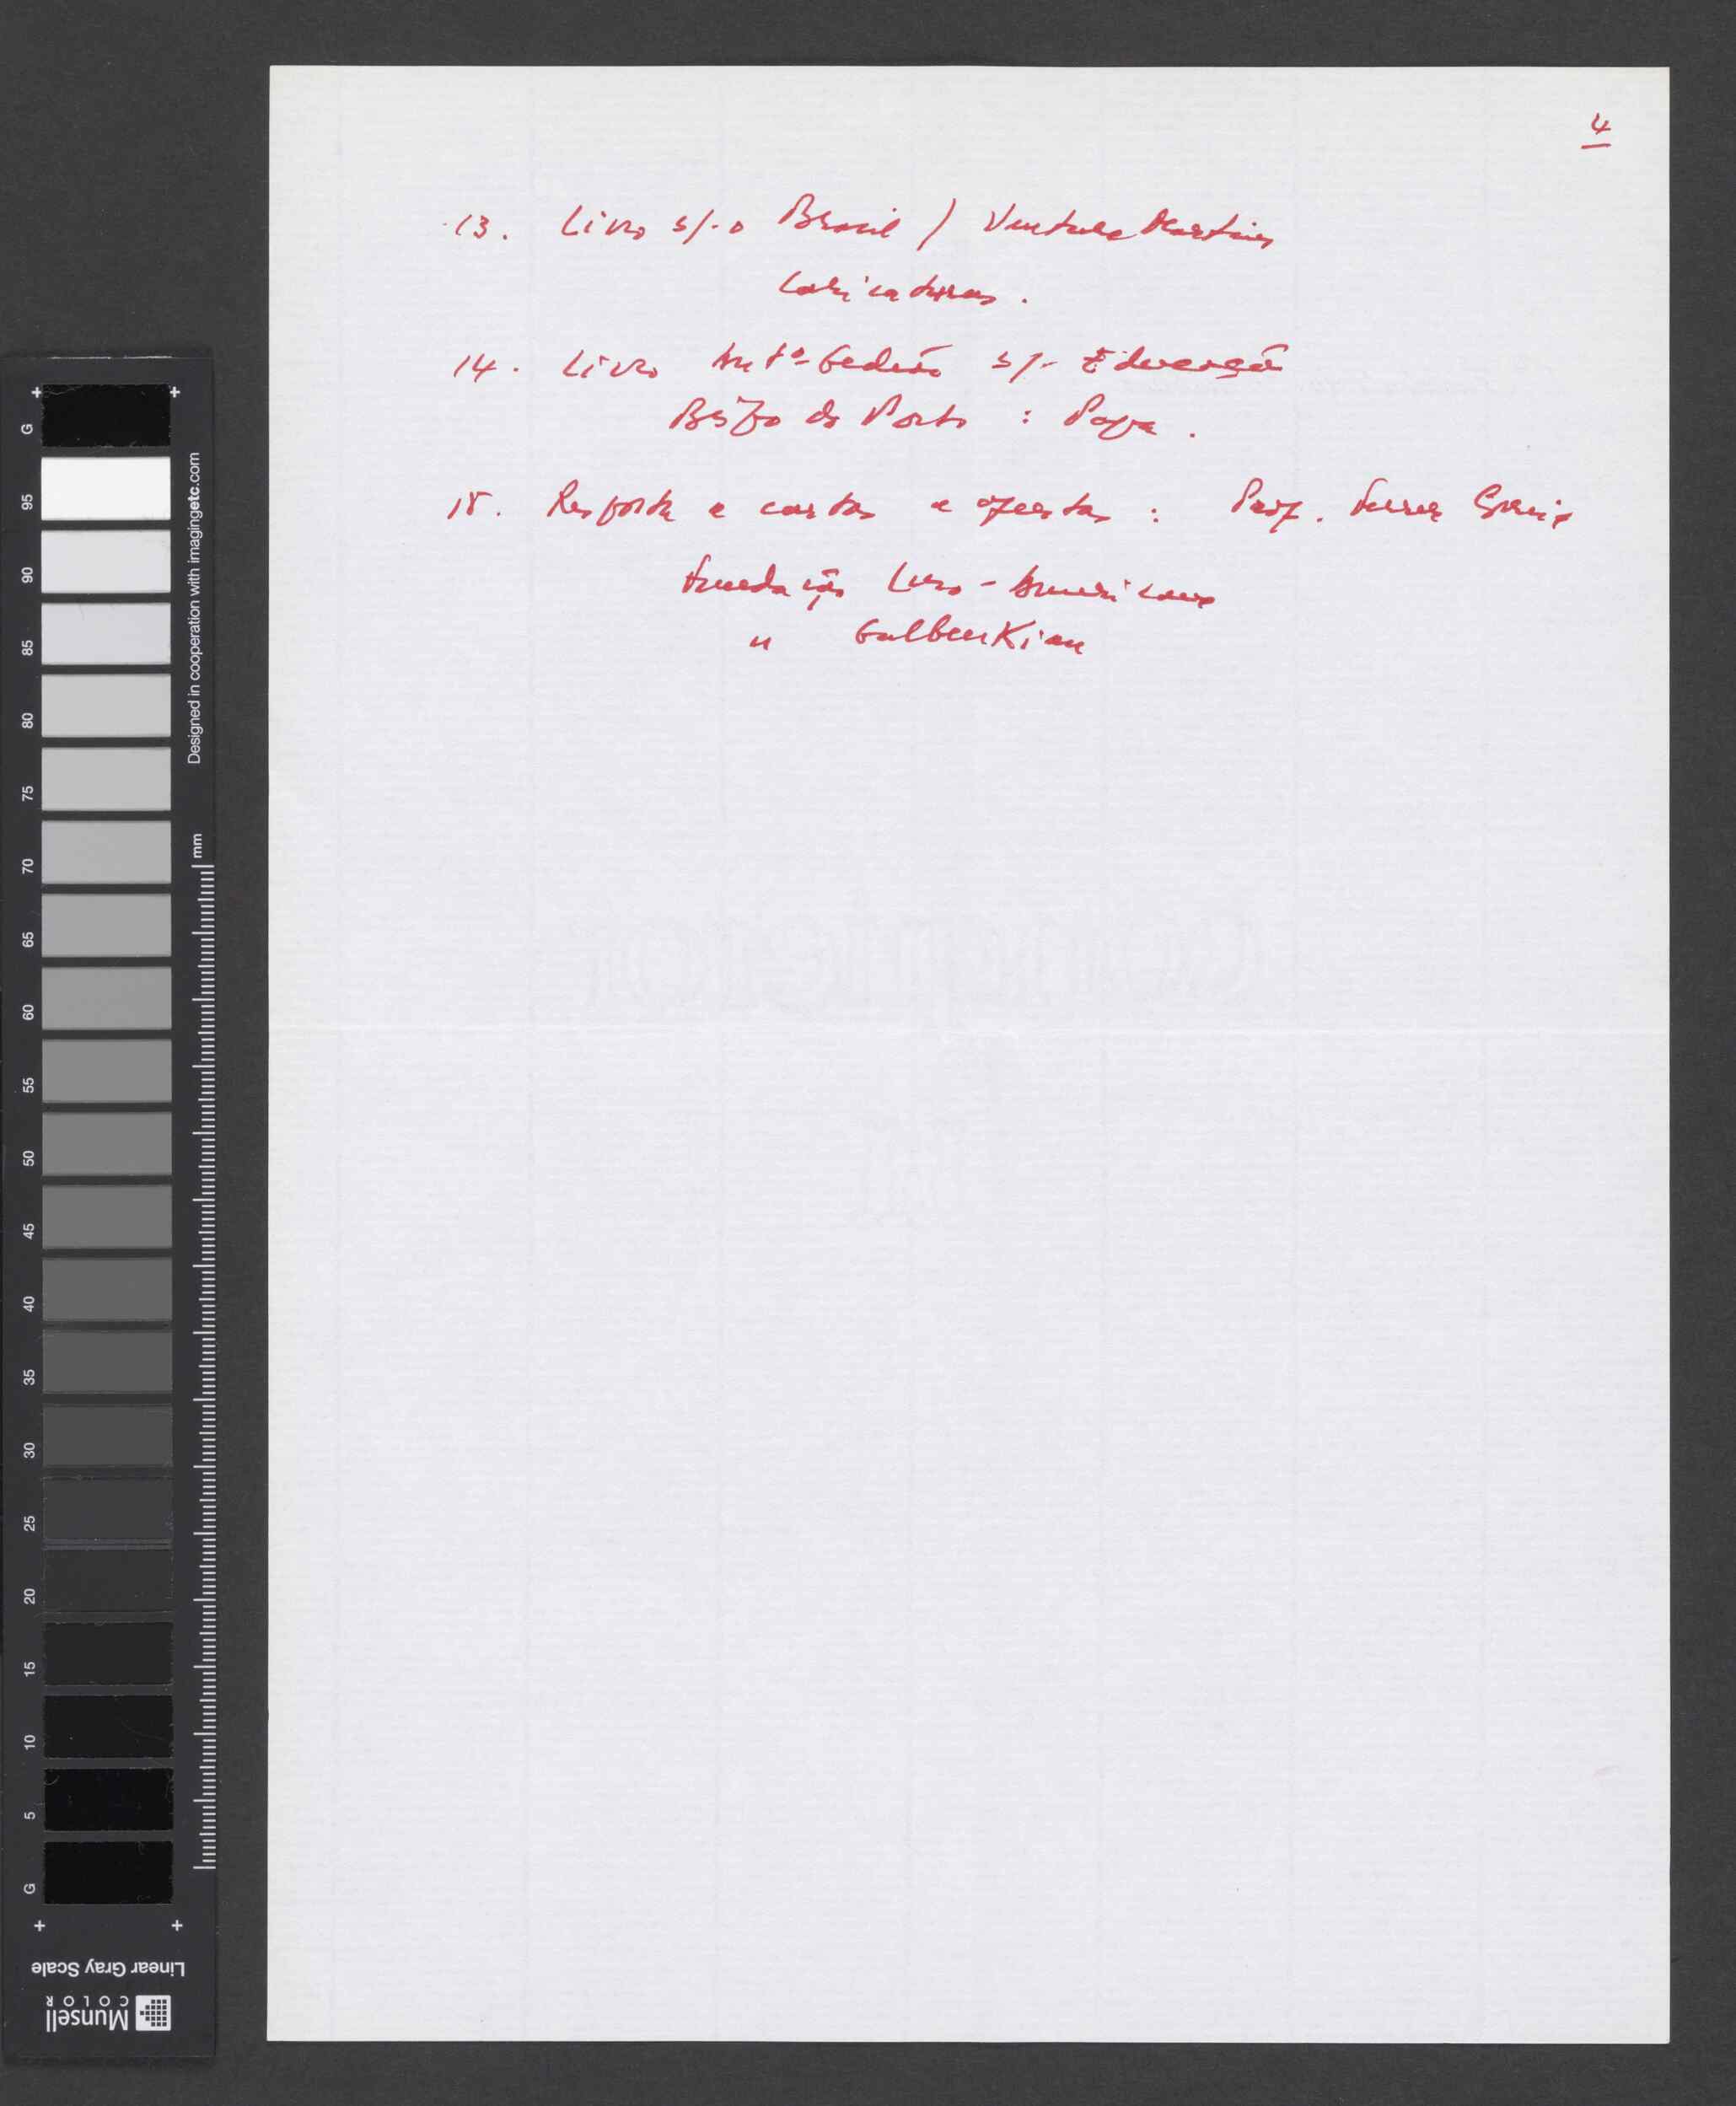 4
13. Livro s/. o Brasil / Ventura Martins
Caricaturas.
14. Livro Antº Gedeão s/. Educação
Bispo do Porto : Papa.
15. Resposta a cartas e ofertas : Prof.
Fundação Luso-Americana
" Gulbenkian
G
95
90
85
80
75
70
65
60
55
50
45
40
35
30
25
20
15
10
5
G
Designed in cooperation with imagingetc.com
mm
Linear Gray Scale
Munsell
COLOR